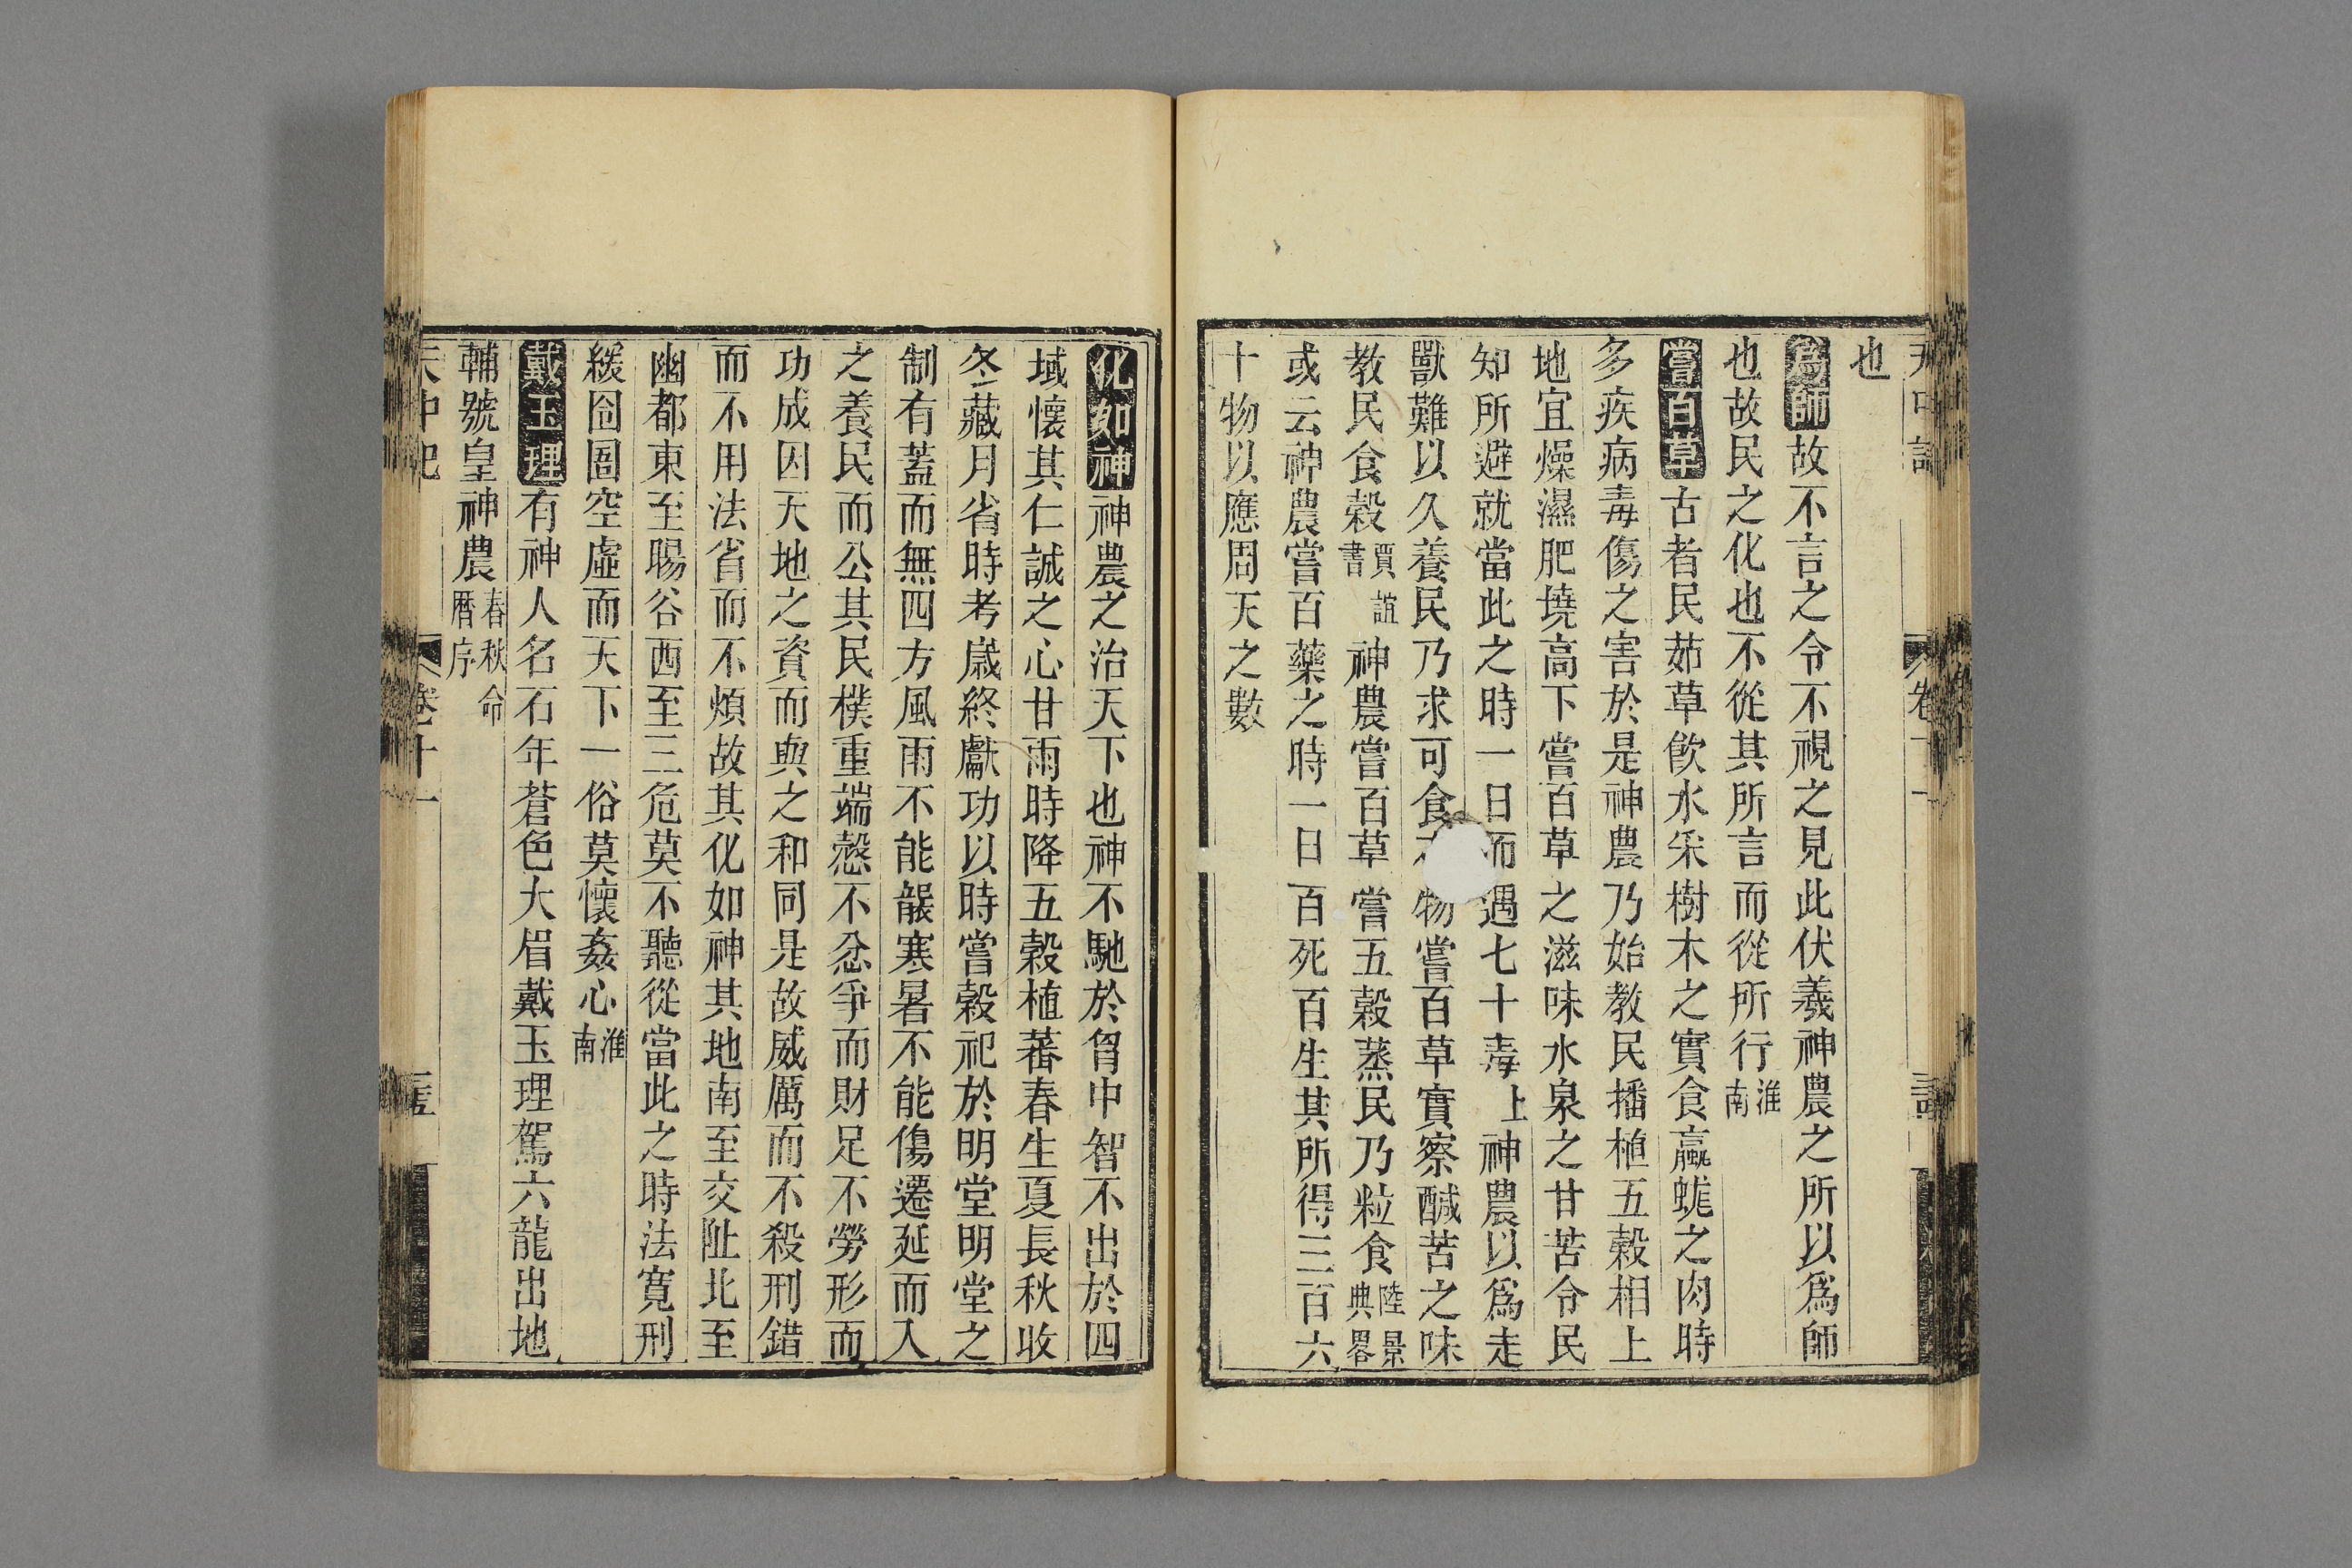 也
爲師故不言之令不視之見此伏羲神農之所以爲師
也故民之化也不從其所言而從所行淮南
嘗百草古者民茹草飲水采樹木之實食蠃蛖之肉時
多疾病毒傷之害於是神農乃始教民播植五榖相上
地宜燥濕肥墝高下嘗百草之滋味水泉之甘苦令民
知所避就當此之時一日而遇七十毒上神農以爲走
獸難以久養民乃求可食物嘗百草實察醎苦之味
教民食榖賈誼書神農嘗百草嘗五榖蒸民乃粒食陸景典畧
或云神農嘗百藥之時一日百死百生其所得三百六
十物以應周天之數
化如神神農之治天下也神不馳於胷中智不出於四
域懷其仁誠之心甘雨時降五榖植蕃春生夏長秋收
冬藏月省時考歲終獻功以時嘗榖祀於明堂明堂之
制有蓋而無四方風雨不能襲寒暑不能傷遷延而入
之養民而公其民樸重端慤不忿爭而財足不勞形而
功成因天地之資而與之和同是故威厲而不殺刑錯
而不用法省而不煩故其化如神其地南至交阯北至
幽都東至暘谷西至三危莫不聽從當此之時法寬刑
緩囹圄空虛而天下一俗莫懷姦心淮南
戴玉理有神人名石年蒼色大眉戴玉理駕六龍出地
輔號皇神農春秋命曆序
天中記 卷十一